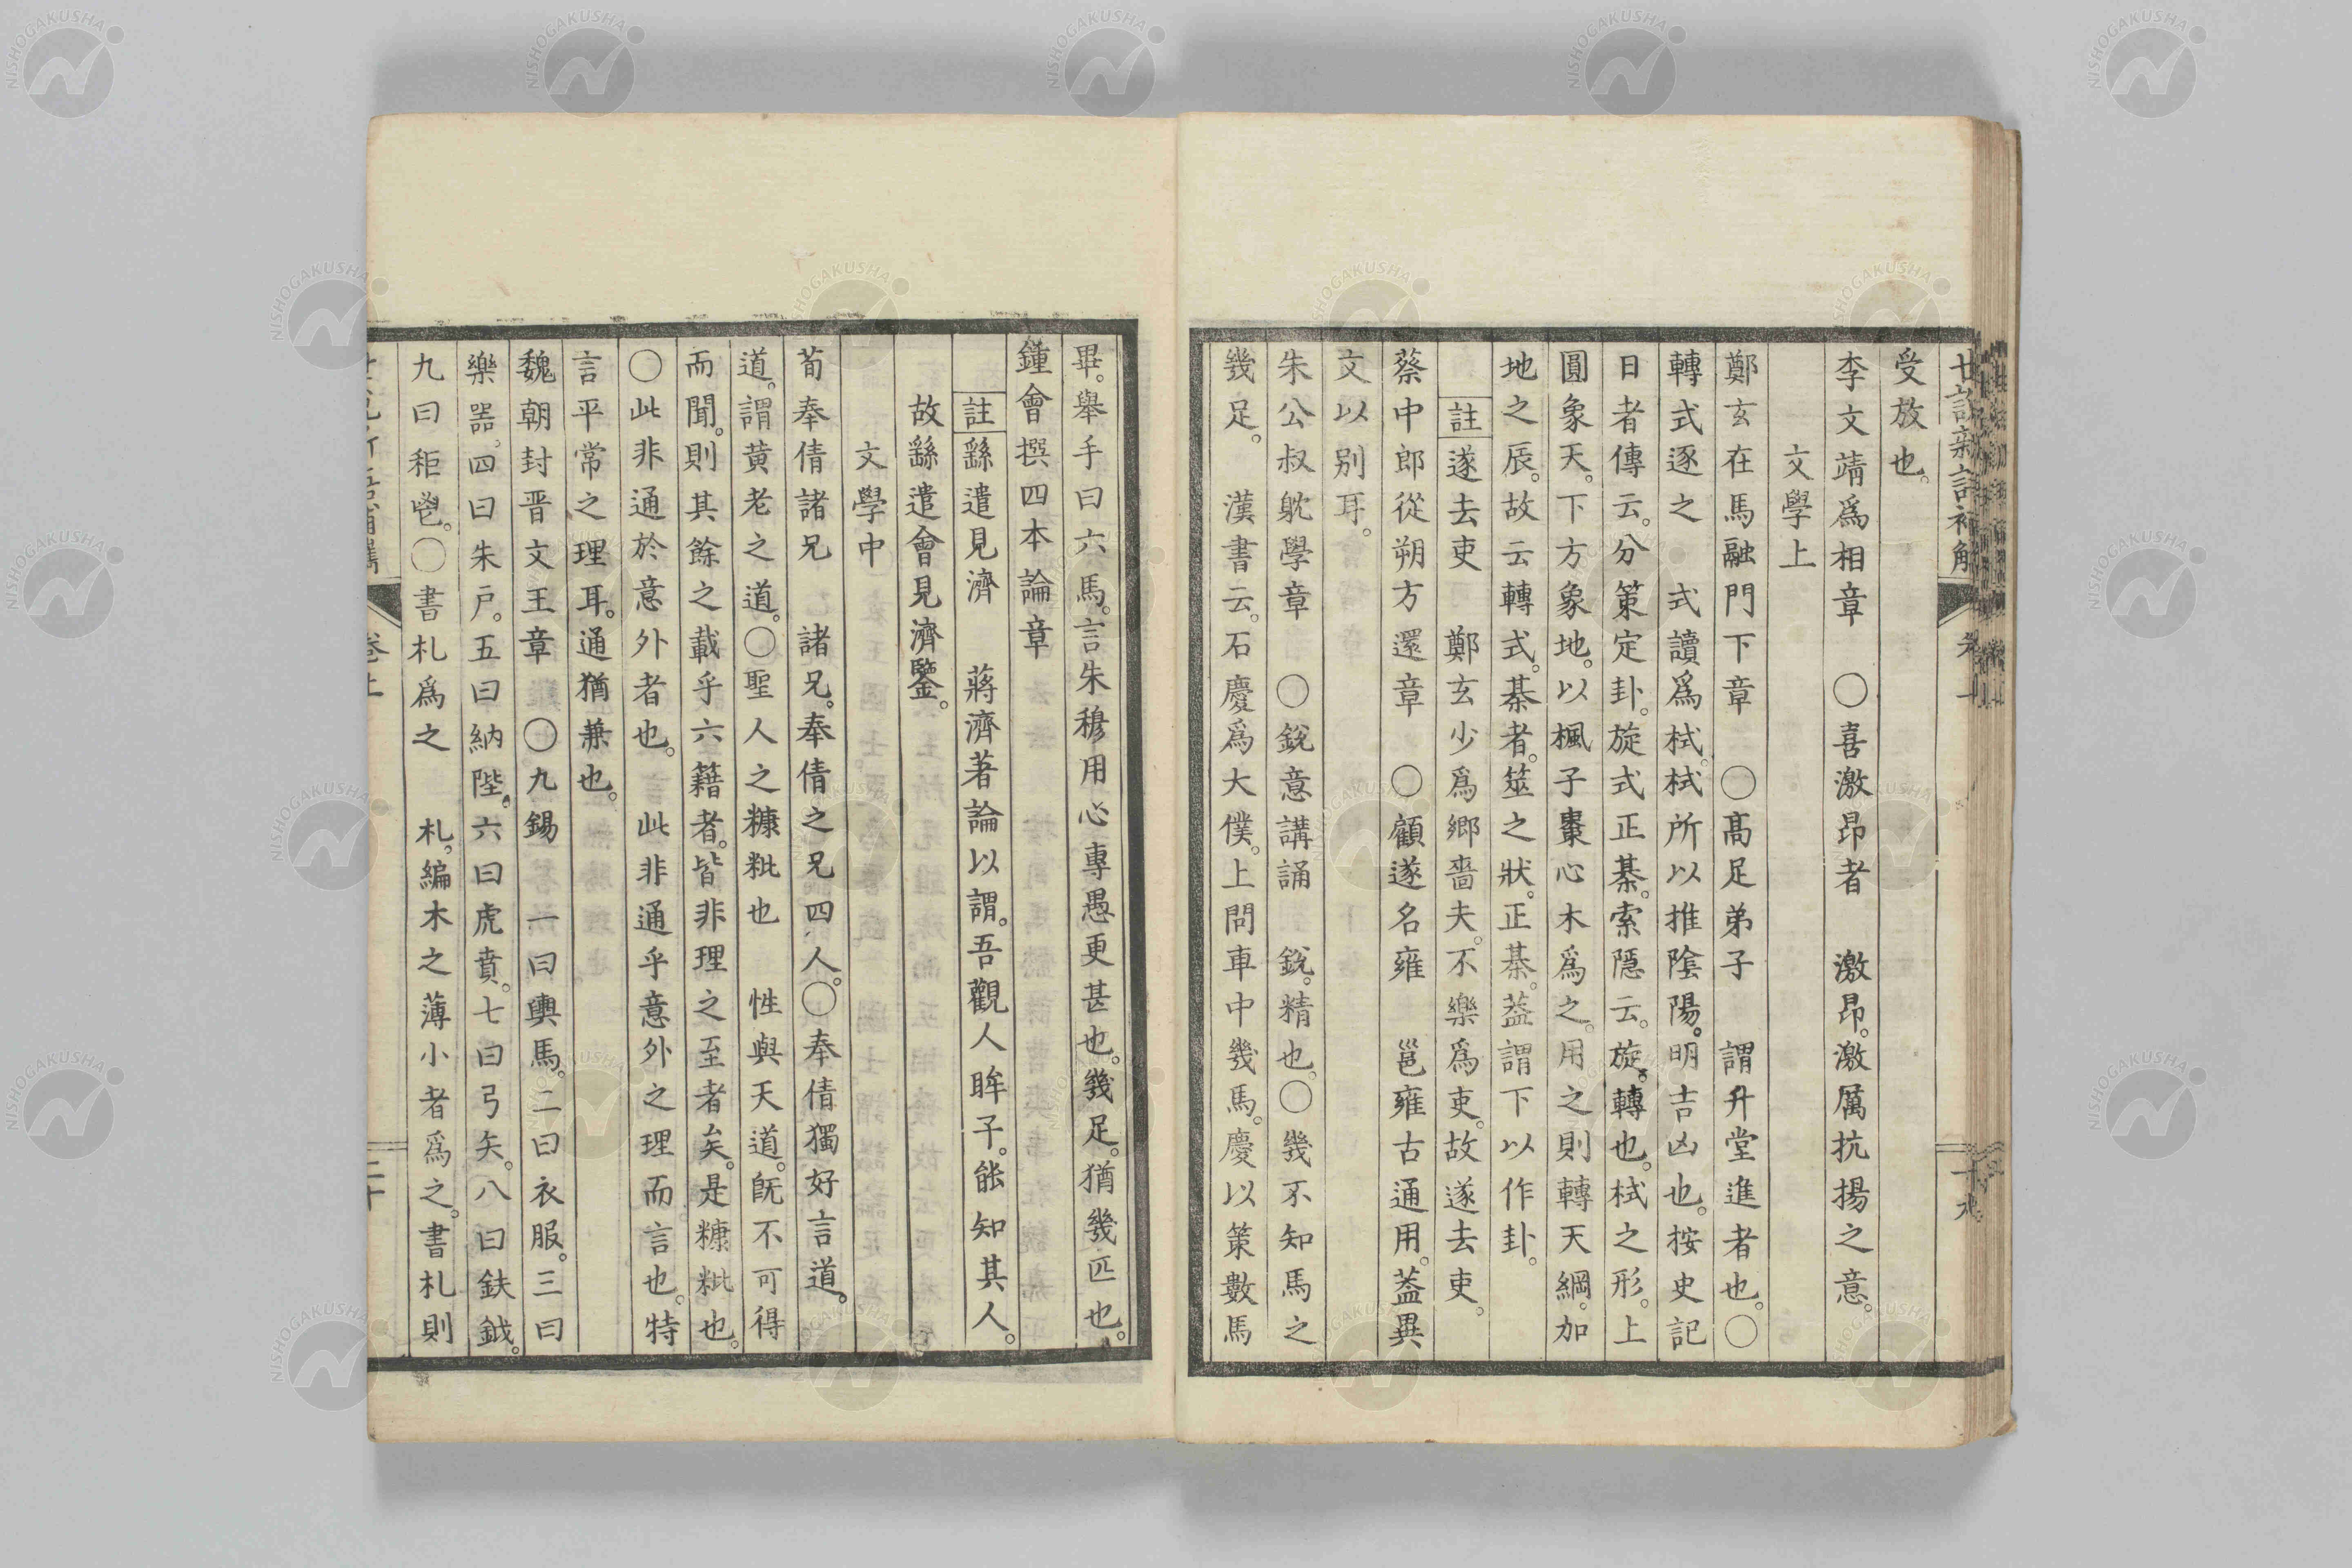 受放也。
李文靖爲相章　〇喜激昂者　激昂。激厲抗揚之意。
文學上
鄭玄在馬融門下章　〇髙足弟子　謂升堂進者也。〇
轉式逐之　式讀爲栻。栻所以推陰陽。明吉凶也。按史記
日者傳云。分策定卦。旋式正棊。索隱云。旋。轉也。栻之形。上
圓象天。下方象地。以楓子棗心木爲之。用之則轉天綱。加
地之辰。故云轉式。棊者。筮之狀。正棊。葢謂下以作卦。
註遂去吏　鄭玄少爲鄉嗇夫。不樂爲吏。故遂去吏。
蔡中郎從朔方還章　〇顧遂名雍　邕雍古通用。葢異
文以别耳。
朱公叔躭學章　〇銳意講誦　銳。精也。〇幾不知馬之
幾足。　漢書云。石慶爲大僕。上問車中幾馬。慶以策數馬
畢。舉手曰六馬。言朱穆用心專愚更甚也。幾足。猶幾匹也。
鍾會撰四本論章
註繇遣見濟　蔣濟著論以謂。吾觀人眸子。能知其人。
故繇遣會見濟鑒。
文學中
荀奉倩諸兄　諸兄。奉倩之兄四人。〇奉倩獨好言道。
道。謂黃老之道。〇聖人之糠粃也　性與天道。既不可得
而聞。則其餘之載乎六籍者。皆非理之至者矣。是糠粃也。
〇此非通於意外者也。　此非通乎意外之理而言也。特
言平常之理耳。通猶兼也。
魏朝封晋文王章　〇九錫　一曰輿馬。二曰衣服。三曰
樂噐。四曰朱戸。五曰納陛。六曰虎賁。七曰弓矢。八曰鈇鉞。
九曰秬鬯。〇書札爲之　札。編木之薄小者爲之。書札則
NISHOGAKUSHA